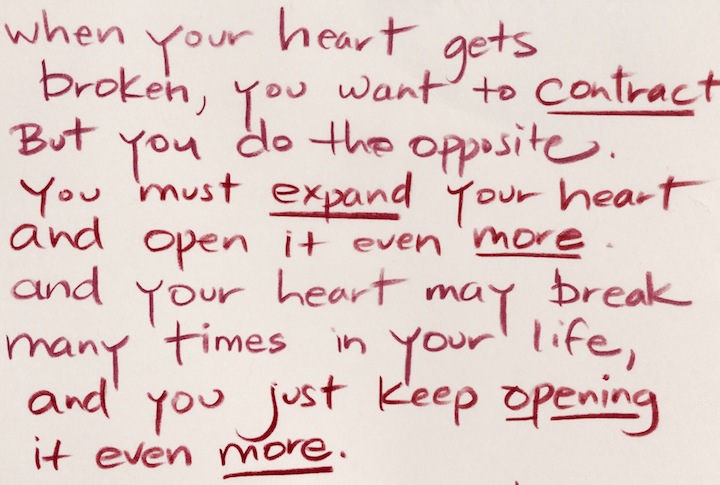 when your heart gets
broken, you want to contract
But you do the opposite.
You must expand your heart
and open it even more.
and your heart may break
many times in your life,
and you just keep opening
it even more.